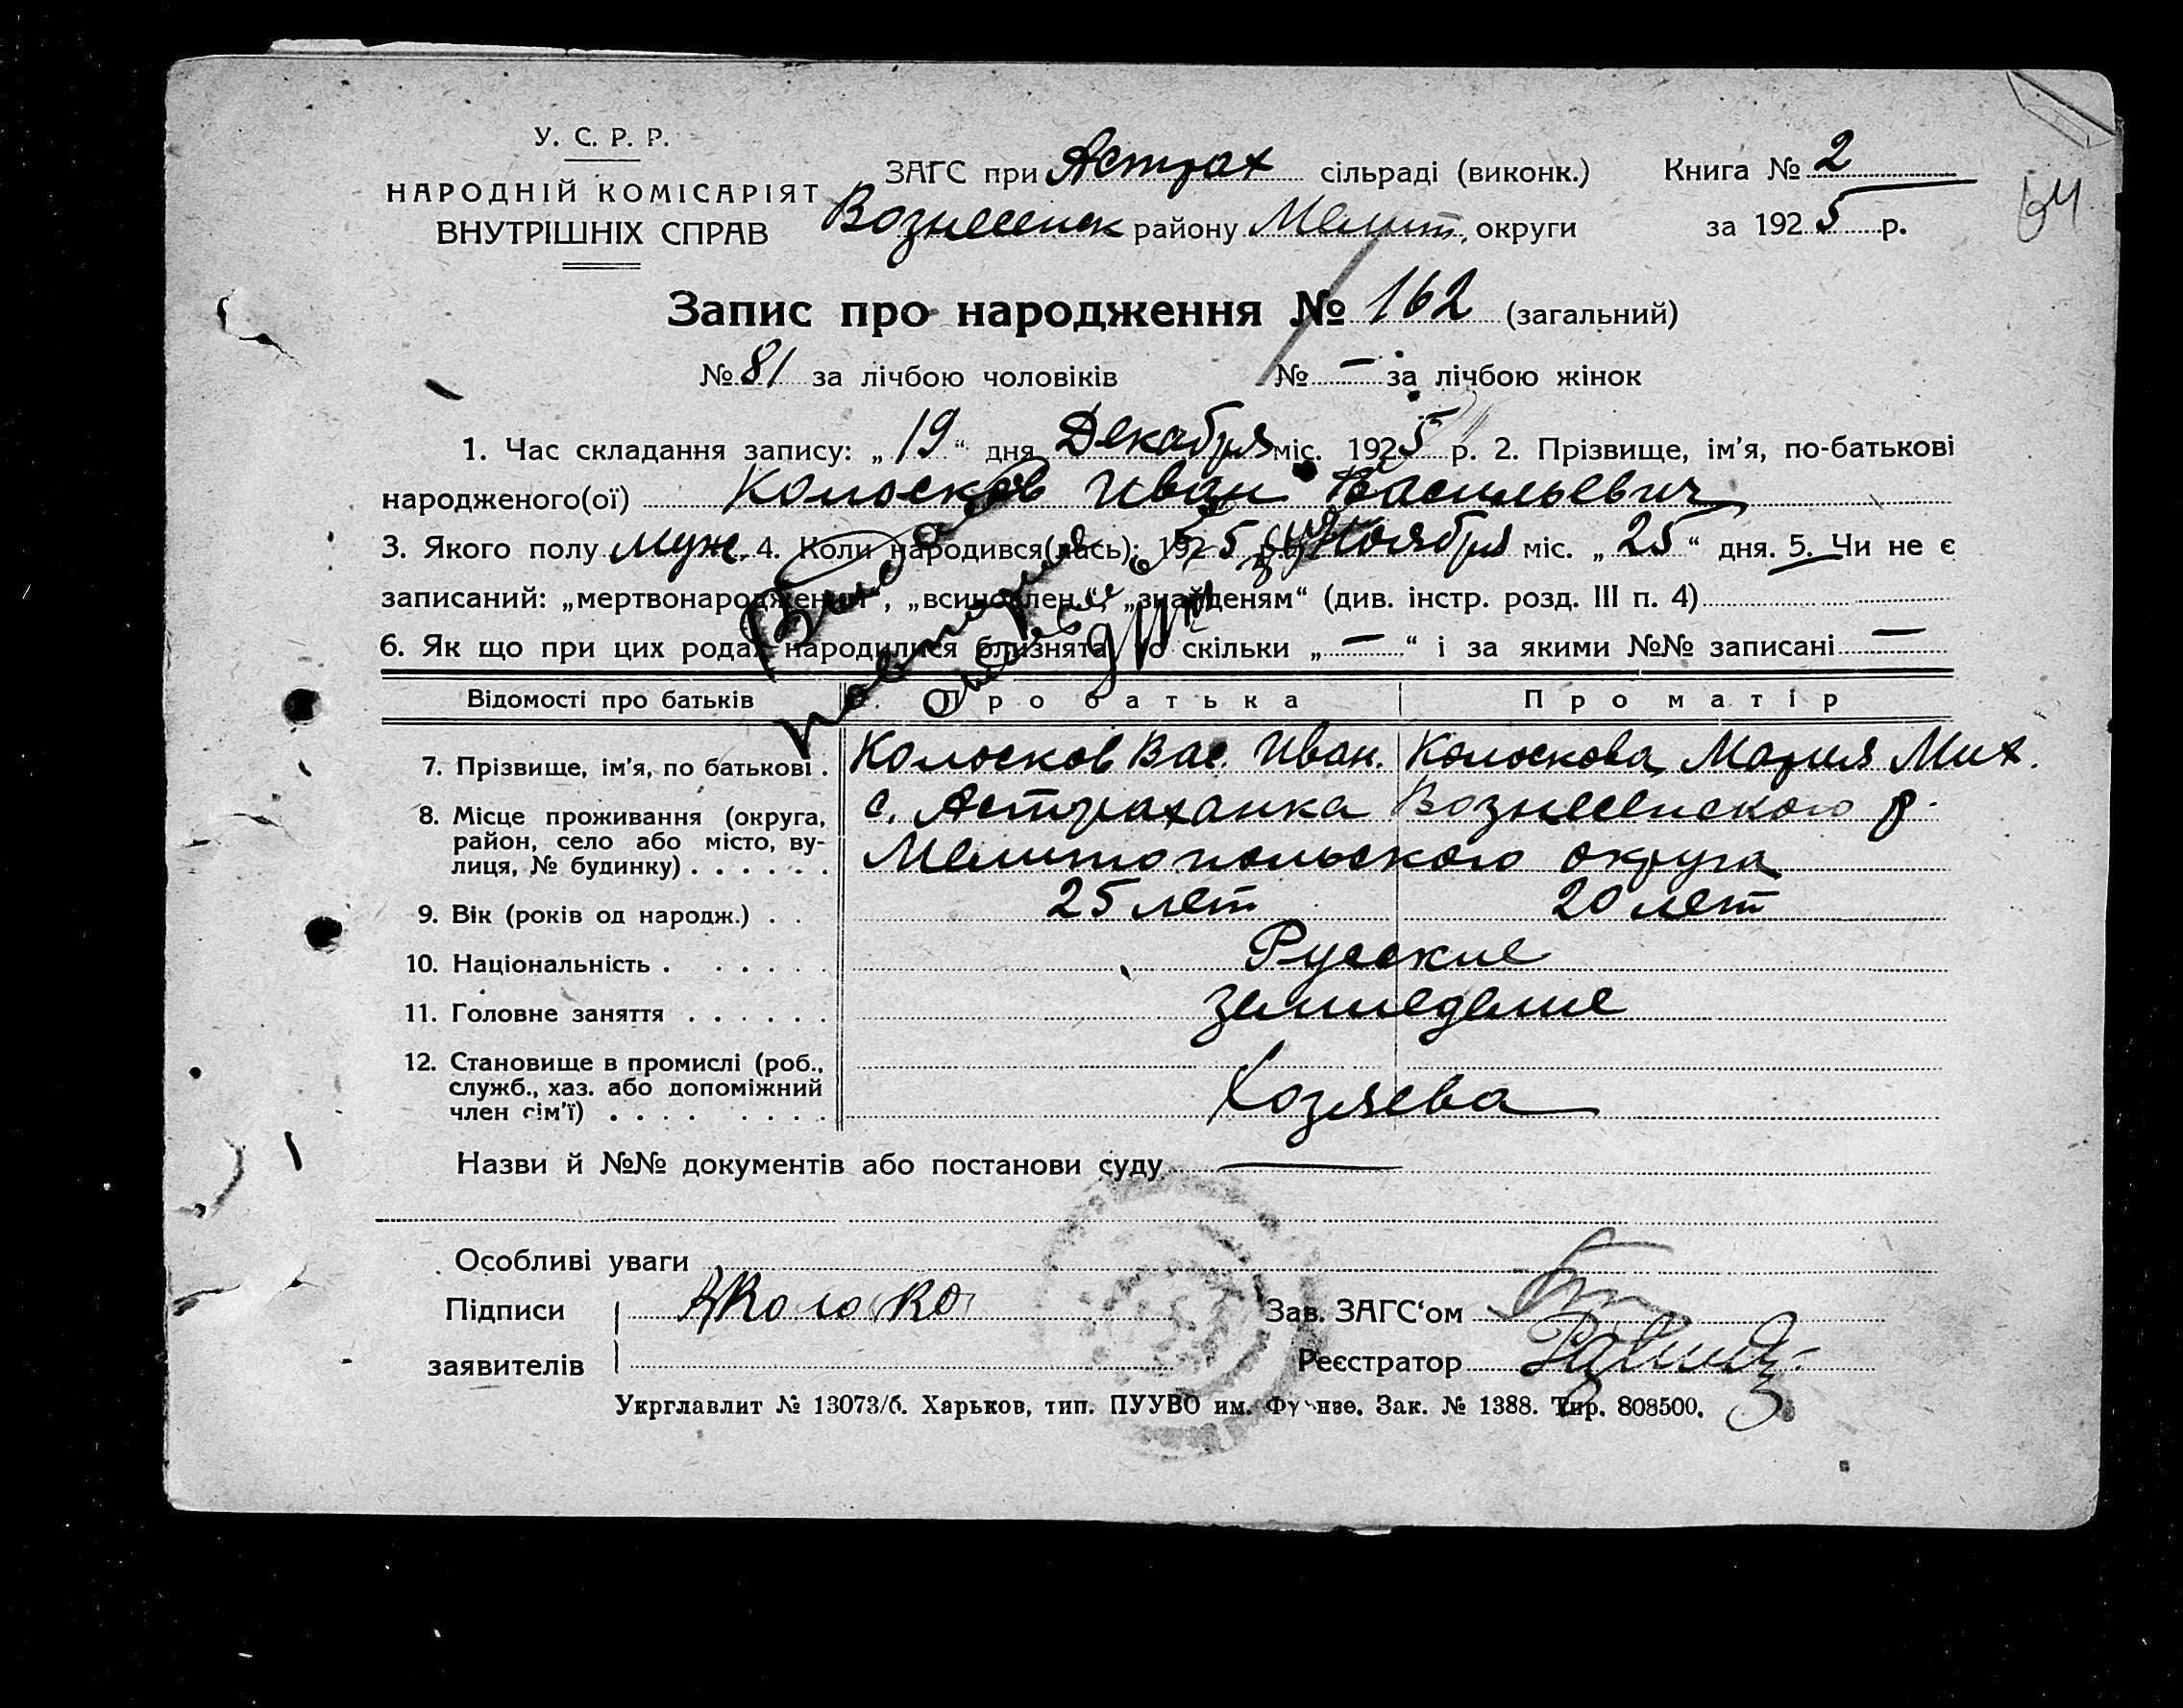 У. С. Р. Р.
НАРОДНІЙ КОМІСАРІЯТ
ВНУТРІШНІХ СПРАВ
ЗАГС при Астрах сільраді (виконк.) Книга № 2
Вознесенск району Мелит. округи за 1925 р.
Запис про народження № 162 (загальний)
№ 81 за лічбою чоловіків № — за лічбою жінок
1. Час складання запису: „19“ дня Декабря міс. 1925 р. 2. Прізвище, ім'я, по-батькові
народженого(ої) Колосков Иван Васильевич
3. Якого полу муж. 4. Коли народився(лась): 1925 р. Ноября міс. „25“ дня. 5. Чи не є
записаний: „мертвонароджений“, „всиновлен.“, „знайденям“ (див. інстр. розд. III п. 4)
6. Як що при цих родах народилися близнята, то скільки „—“ і за якими №№ записані —
Відомості про батьків Про батька Про матір
7. Прізвище, ім'я, по батькові . Колосков Вас. Иван. Колоскова Мария Мих.
8. Місце проживання (округа, район, село або місто, вулиця, № будинку) . . . . . . с. Астраханка Вознесенского р.
Мелитопольского округа
9. Вік (років од народж.) . . 25 лет 20 лет
10. Національність . . . . . . Русские
11. Головне заняття . . . . . . земледелие
12. Становище в промислі (роб., служб., хаз. або допоміжний член сім'ї) . . . . . . . . Хозяева
Назви й №№ документів або постанови суду —
Особливі уваги
Підписи Зав. ЗАГС‘ом
заявителів Реєстратор
Укрглавлит № 13073/б. Харьков, тип. ПУУВО им. Фрунзе. Зак. № 1388. Тир. 808500.